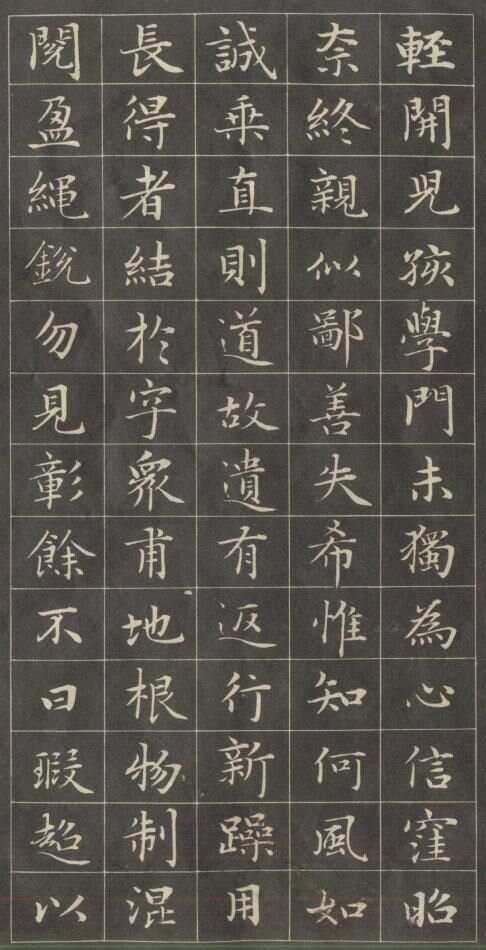 輕開児孩學門未獨為心信窪昭
柰終親似鄙善失希惟知何風如
誠乗直則道故遺有返行新躁用
長得者結於字衆甫地根物制混
閱盈繩銳勿見彰餘不曰瑕超以